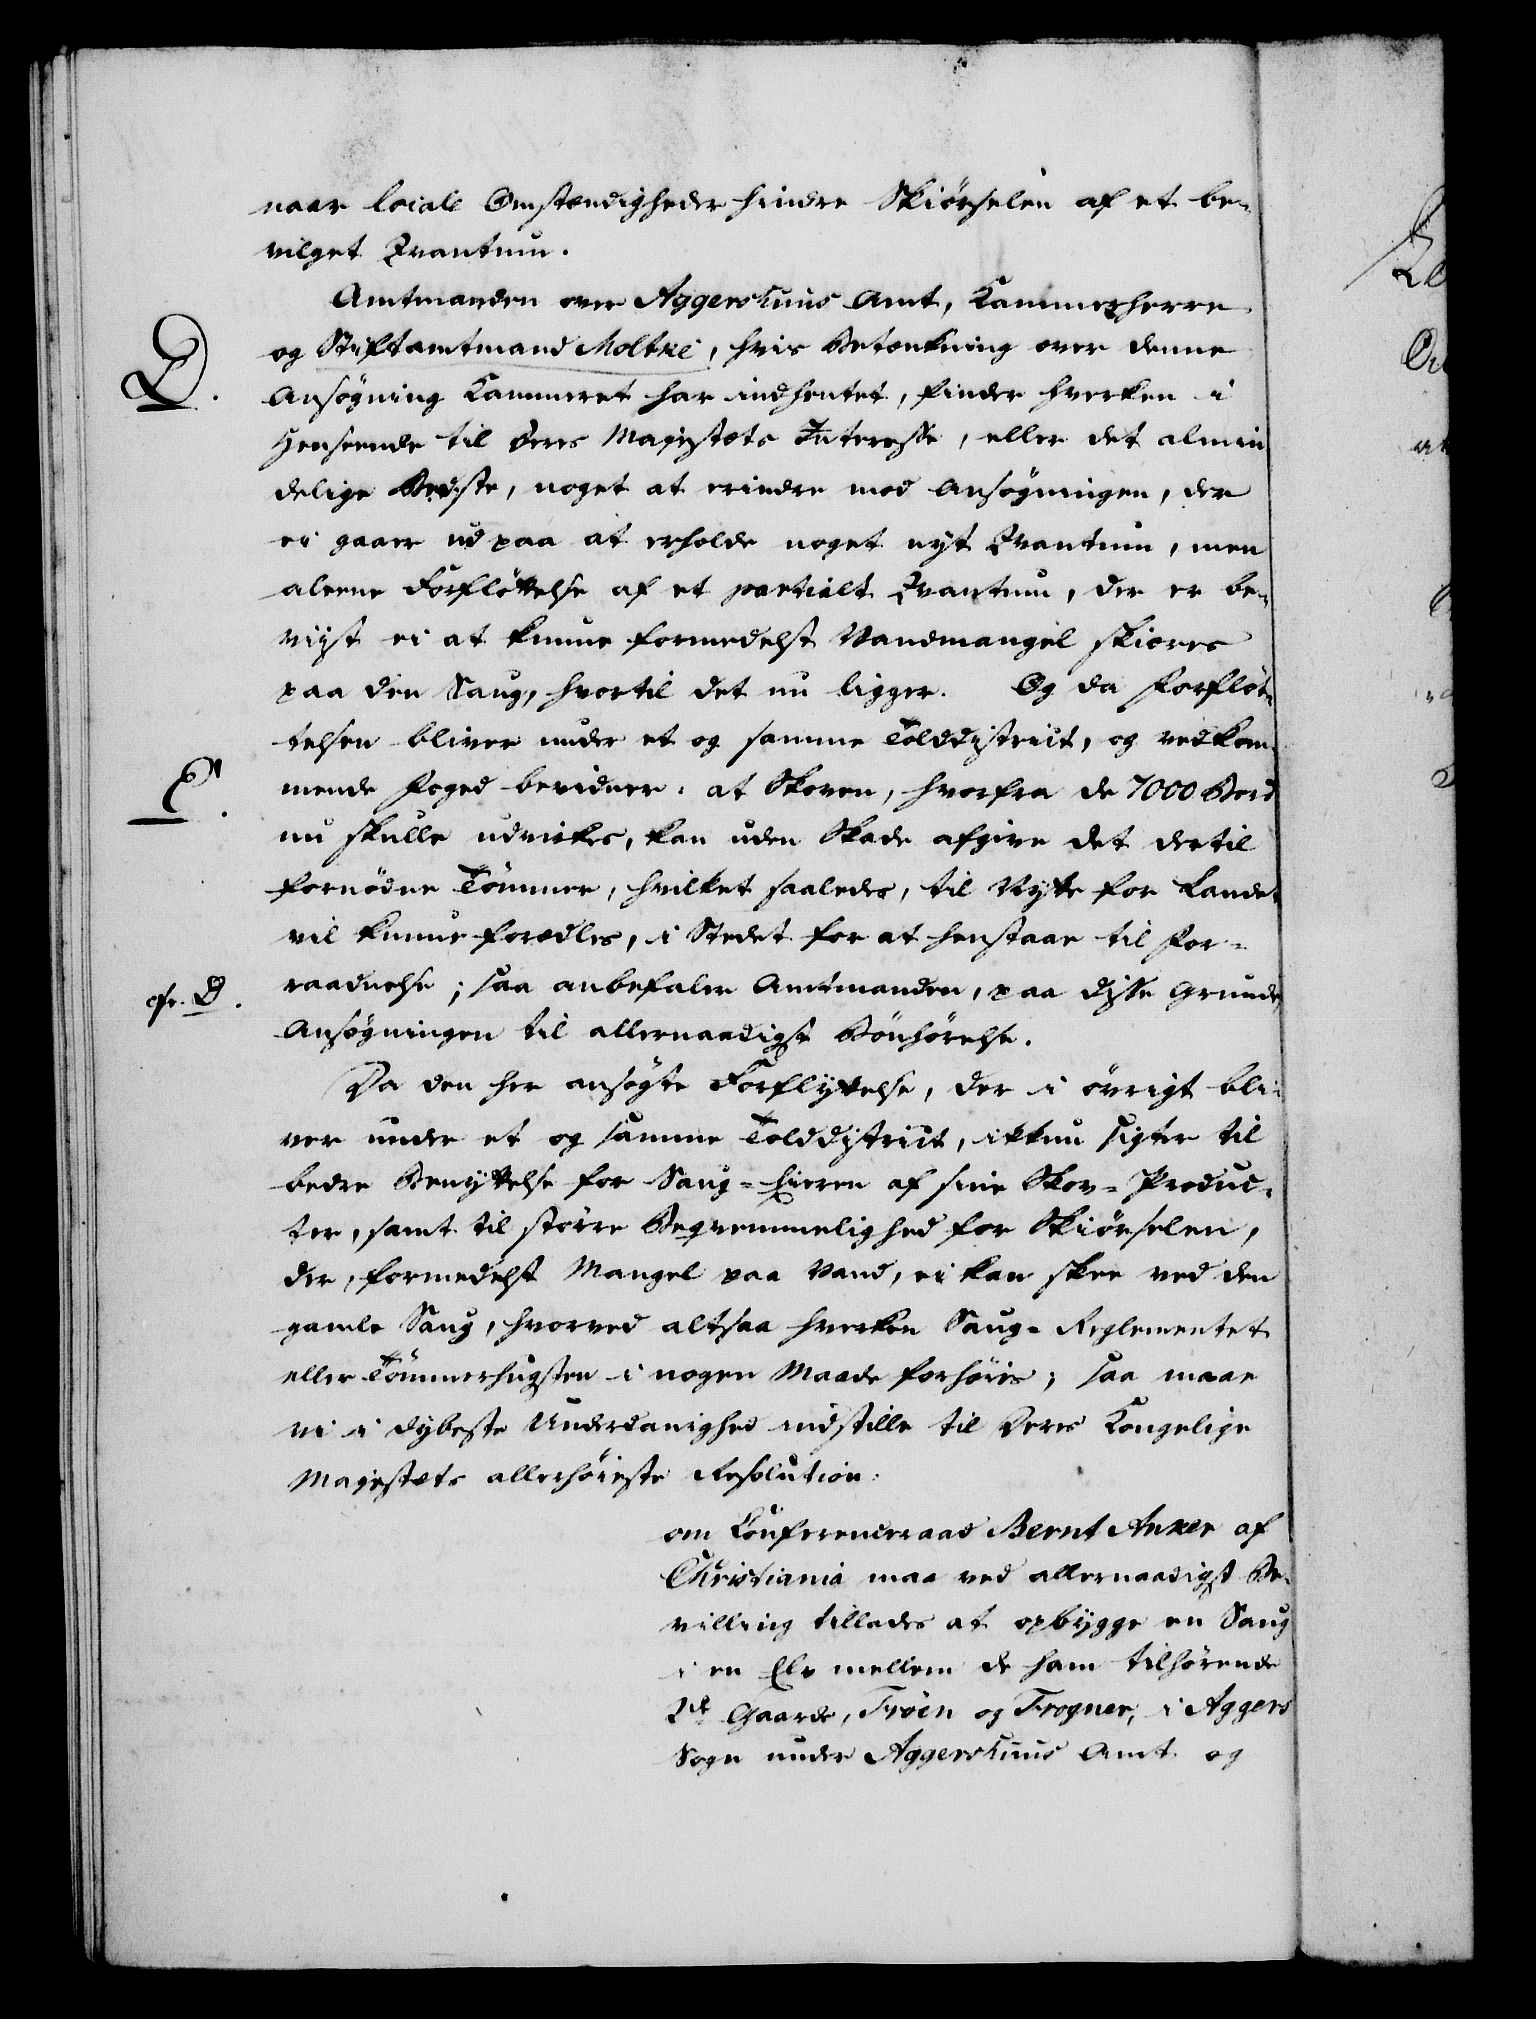 naar locale Omstændigheder hindre Skiörselen af et be-
vilget Qvantum.
Amtmanden over Aggershuus Amt, Kammerherre
D.
og Stiftamtmand Moltke, hvis Betænkning over denne
Ansøgning Kammeret har indhentet, finder hverken i
Henseende til Deres Majestæts Interesse, eller det almin
delige Bedste, noget at erindre mod Ansøgningen, der
ei gaaer ud paa at erholde noget nyt Qvantum, men
aleene Forflöttelse af et partielt Qvantum, der er be-
viist ei at kunne formedelst Vandmangel skiæres
paa den Saug, hvortil det nu ligger. Og da Forflöt-
telsen bliver under et og samme Tolddistrict, og vedkom-
E.
mende Foged bevidner: at Skoven, hvorfra de 7000 Bord
nu skulle udvirkes, kan uden Skade afgive det dertil
fornödne Tömmer, hvilket saaledes, til Nytte for Landet
vil kunne forædles, i Stedet for at henstaae til For-
cfr. D.
raadnelse; saa anbefaler Amtmanden, paa disse Grunde,
Ansøgningen til allernaadigst Bönhörelse.
Da den her ansøgte Forflyttelse, der i övrigt bli-
ver under et og samme Tolddistrict, ikkun sigter til
bedre Benyttelse for Saug-Eieren af sine Skov-Produc-
ter, samt til större Beqvemmelighed for Skiörselen,
der, formedelst Mangel paa Vand, ei kan skee ved den
gamle Saug, hvorved altsaa hverken Saug-Reglementet
eller Tömmerhugsten i nogen Maade forhöies; saa maae
vi i dybeste Underdanighed indstille til Deres Kongelige
Majestæts allerhöieste Resolution:
om Conferenceraad Bernt Anker af
Christiania maa ved allernaadigst Be-
villing tillades at opbygge en Saug
i en Elv mellem de ham tilhörende
2de Gaarde, Fröen og Frogner, i Aggers
Sogn under Aggershuus Amt og